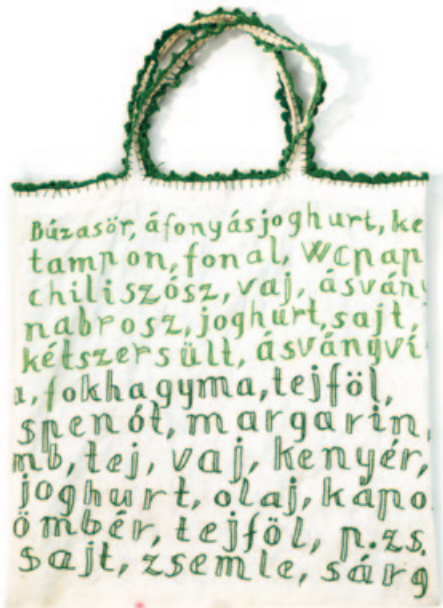 Búzasör, áfonyásjoghurt, ke
tampon, fonal, WCpap
chiliszósz, vaj, ásván
nabrosz, joghurt, sajt,
kétszersült, ásványví
a, fokhagyma, tejföl,
spenót, margarin,
mb, tej, vaj, kenyér,
joghurt, olaj, kápo
ömbér, tejföl, p.zs.
sajt, zsemle, sárg